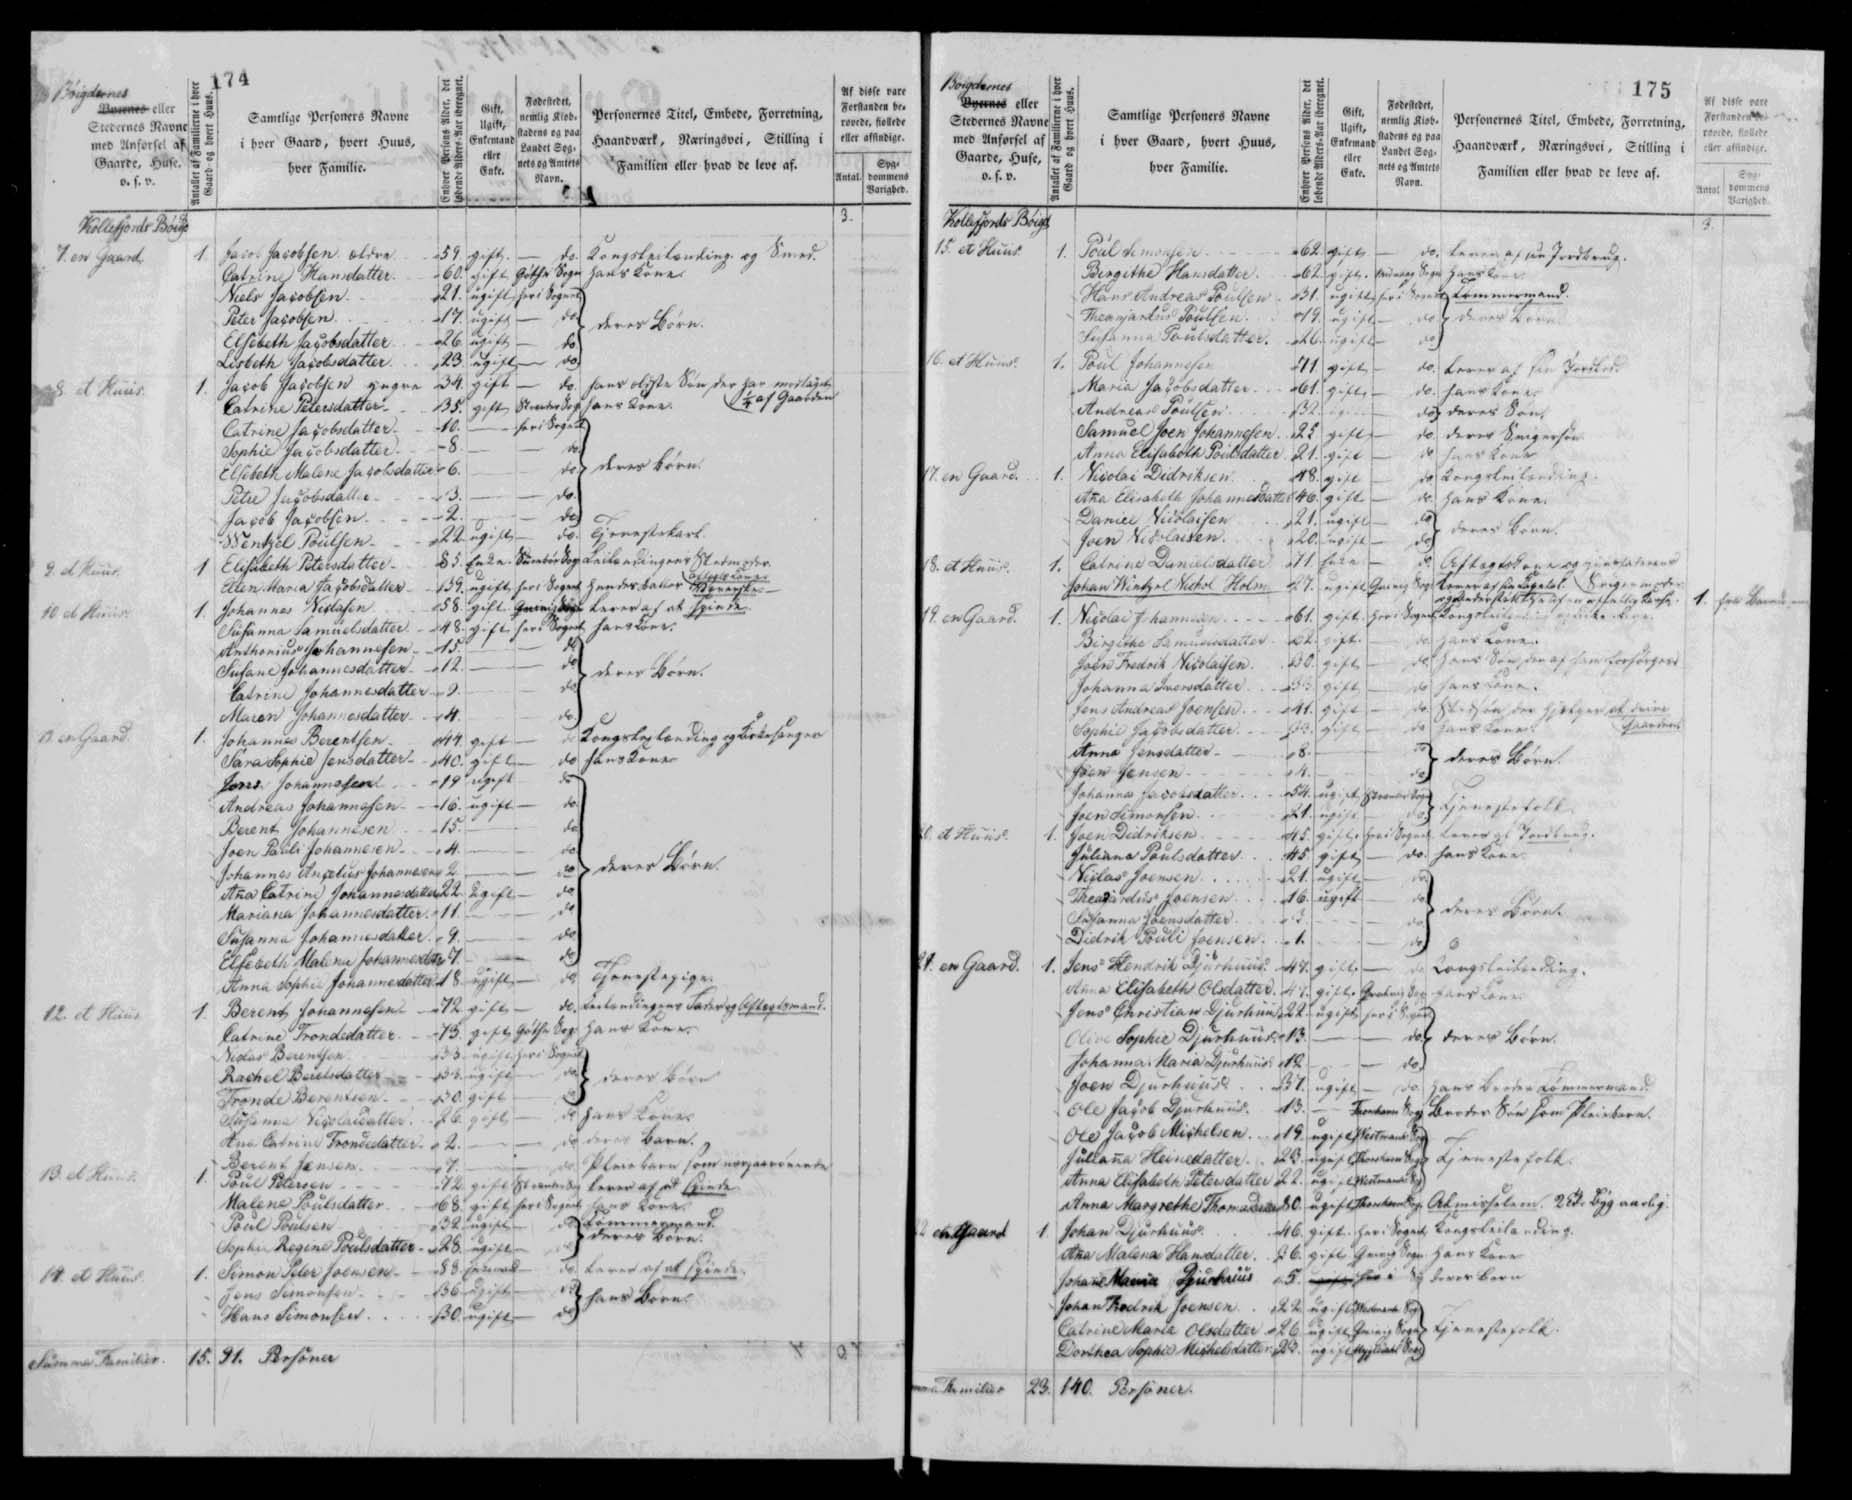 174
Bôigdernes
Byernes eller
Stedernes Navne
med Anførsel af
Gaarde, Huse,
o. s. v.
Antallet af Familierne i hver Gaard og hvert Huus.
Samtlige Personers Navne
i hver Gaard, hvert Huus,
hver Familie.
Enhver Persons Alder, det løbende Alders-Aar iberegnet.
Gift,
Ugift,
Enkemand
eller
Enke.
Fødestedet,
nemlig Kiøb-
stadens og paa
Landet Sog-
nets og Amtets
Navn.
Personernes Titel, Embede, Forretning,
Haandværk, Næringsvei, Stilling i
Familien eller hvad de leve af.
Af disse vare
Forstanden be-
røvede, fiollede
eller afsindige.
Antal.
Syg-
dommens
Varighed.
Kollefjords Bôigd 3.
7. en Gaard. 1. Jacob Jacobsen ældre 59. gift — do. Kongsleilænding og Smed.
Catrine Hansdatter 60. gift Gôthe Sogn hans Kone.
Niels Jacobsen 21. ugift her i Sognet
Peter Jacobsen 17. ugift — do. deres Børn.
Elsebeth Jacobsdatter 26 ugift — do.
Lisbeth Jacobsdatter 23 ugift — do.
8. et Huus. 1. Jacob Jacobsen yngre 34. gift — do. hans ældste Søn, der har modtaget
Catrine Petersdatter 35. gift Strømøe Sogn hans Kone. 1/4 af Gaarden
Catrine Jacobsdatter 10. — her i Sognet
Sophie Jacobsdatter 8 — do.
Elsebeth Malene Jacobsdatter 6. — do. deres børn.
Petre Jacobsdatter 3. — do.
Jacob Jacobsen 2. — do.
Wentzel Poulsen 22 ugift — do. Tjenestekarl.
9. et Huus. 1 Elisabeth Petersdatter 85. Enke Sumbôe Sogn Leilændingens Stedmoder
Ellen Maria Jacobsdatter 59. ugift her i Sognet hendes datter
10 et Huus. 1. Johannes Niclasen 58. gift Qvivig Sogn Lever af at spinde.
Susanna Samuelsdatter 48. gift her i Sognet hans Kone.
Anthonius Johannesen 15. — do
Susane Johannesdatter 12. — do deres Børn.
Catrine Johannesdatter 9. — do
Maren Johannesdatter 4. — do
11. en Gaard. 1. Johannes Berentsen 44. gift — do Kongsleilænding og Kirkesanger
Sara Sophie Jensdatter 40. gift — do hans Kone
Jens Johannesen 19 ugift do
Andreas Johannesen 16. ugift — do.
Berent Johannesen 15. — do
Joen Pauli Johannesen 4. — do
Johannes Angelius Johannesen 2 — do deres Børn.
Ana Catrine Johannesdatter 22. ugift — do
Mariana Johannesdatter 11 — do
Susanna Johannesdatter 9. — do
Elsebeth Malene Johannesdatter 7. — do
Anna Sophie Johannesdatter 18 ugift — do Tjenestepige.
12. et Huus 1. Berent Johannesen 72 gift — do. Leilændingens Fader og Aftægtsmand.
Catrine Trondedatter 73. gift Gôthe Sogn hans Kone.
Niclas Berentsen 33 ugift her i Sognet
Rachel Berentsdatter 33. ugift — do. deres børn
Tronde Berentsen 30. gift — do
Susanna Nicolaidatter 26 gift — do hans Kone.
Ana Catrine Trondesdatter 2. — do deres Barn.
Berent Jensen 7. — do. Pleiebarn
13. et Huus. 1. Poul Petersen 72. gift Strømøe Sogn lever af at spinde
Malene Poulsdatter 68. gift her i Sognet hans Kone.
Poul Poulsen 32 ugift — do Tømmermand
Sophie Regine Poulsdatter 28. ugift — do deres Børn.
14. et Huus. 1. Simon Peter Joensen 83 Enkemand do. Lever af at spinde.
Jens Simonsen 36 ugift — do hans Børn.
Hans Simonsen 30. ugift — do
Summa Familier. 15. 91. Personer
175
Bôigdernes
Byernes eller
Stedernes Navne
med Anførsel af
Gaarde, Huse,
o. s. v.
Antallet af Familierne i hver Gaard og hvert Huus.
Samtlige Personers Navne
i hver Gaard, hvert Huus,
hver Familie.
Enhver Persons Alder, det løbende Alders-Aar iberegnet.
Gift,
Ugift,
Enkemand
eller
Enke.
Fødestedet,
nemlig Kiøb-
stadens og paa
Landet Sog-
nets og Amtets
Navn.
Personernes Titel, Embede, Forretning,
Haandværk, Næringsvei, Stilling i
Familien eller hvad de leve af.
Af disse vare
Forstanden be-
røvede, fiollede
eller afsindige.
Antal
Syg-
dommens
Varighed.
Kollefjords Bôigd 3.
15. et Huus 1. Poul Simonsen 62. gift — do. Lever af sin Jordbrug.
Birgithe Hansdatter 62. gift hans Kone.
Hans Andreas Poulsen 31. ugift her i Sognet Tømmermand.
Theajardus Poulsen 19. ugift — do deres Børn
Susanna Poulsdatter 26. ugift — do
16. et Huus. 1. Poul Johannesen 71. gift — do. Lever af sin Jordlod.
Maria Jacobsdatter 61. gift — do. hans Kone.
Andreas Poulsen 32. do deres Søn.
Samuel Joen Johannesen 25 gift — do. deres Svigersøn
Anna Elisabeth Poulsdatter 21. gift — do hans Kone
17. en Gaard. 1. Nicolai Didriksen 48. gift — do Kongsleilænding.
Ana Elisabeth Johannesdatter 46. gift — do. hans Kone.
Daniel Nicolaisen 21. ugift — do deres Børn.
Joen Nicolaisen 20. ugift — do
18. et Huus. 1. Catrine Danielsdatter 71. Enke — do.
Johan Wintzel Nickol Holm 27. ugift Qvivig Sogn 1.
19. en Gaard. 1. Nicolai Johannesen 61. gift her i Sognet
Birgithe Samuelsdatter 62. gift — do hans Kone.
Joen Fredrik Nicolaisen 30. gift — do hans Søn, der af ham forsørges
Johanna Iversdatter 33 gift — do hans Kone.
Jens Andreas Joensen 41. gift — do Stedsøn der hjelper at drive Gaarden
Sophie Jacobsdatter 33. gift — do hans Kone.
Anna Jensdatter 8. — do deres Børn.
Joen Jensen 4. — do
Johanna Jacobsdatter 54. ugift Strømøe Sogn Tjenestefolk
Joen Simonsen 21. ugift — do
20. et Huus. 1. Joen Didriksen 45. gift her i Sognet Lever af Jordbrug.
Juliana Poulsdatter 45 gift — do. hans Kone.
Niclas Joensen 21. ugift — do
Theajardus Joensen 16. ugift — do deres Børn.
Susanna Joensdatter 3 — do
Didrik Pouli Joensen 1. — do
21. en Gaard. 1. Jens Hendrik Djurhuus 47. gift — do Kongsleilænding.
Anna Elisabeth Olsdatter 47. gift hans Kone
Jens Christian Djurhuus 22 ugift her i Sognet
Olive Sophie Djurhuus 13. — do. deres Børn.
Johanna Maria Djurhuus 12 — do.
Joen Djurhuus 37. ugift — do. hans Broder Tømmermand
Ole Jacob Djurhuus 13. — Thorshavn Sogn Broders Søn som Pleiebarn.
Ole Jacob Michelsen 19. ugift Westmanh. Sogn
Juliana Heinedatter 23. ugift Thorshavn Sogn Tjenestefolk.
Anna Elisabeth Petersdatter 22. ugift Westmanh. Sogn
Anna Margrethe Thomasdatter 80. ugift Thorshavn Sogn Almisselem.
22. en Gaard 1. Johan Djurhuus 46. gift her i Sognet Kongsleilænding.
Ana Malena Hansdatter 36. gift Qvivig Sogn hans Kone
Johane Maria Djurhuus 5. her i Sog deres Barn
Johan Fredrik Joensen 22 ugift Westmanh. Sogn
Catrine Maria Olsdatter 26 ugift Qvivig Sogn Tjenestefolk.
Dorthea Sophie Michelsdatter 23. ugift
Familier 23. 140. Personer.